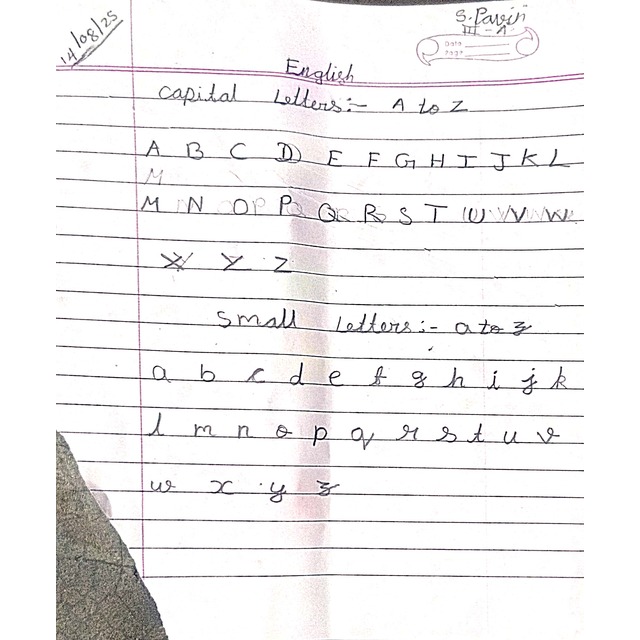 14/08/25
S. Pavin
III - A
Date
Page
English
Capital Letters:- A to Z
A B C D E F G H I J K L
M
M N O P Q R S T U V W
X Y Z
Small Letters:- a to z
a b c d e f g h i j k
l m n o p q r s t u v
w x y z